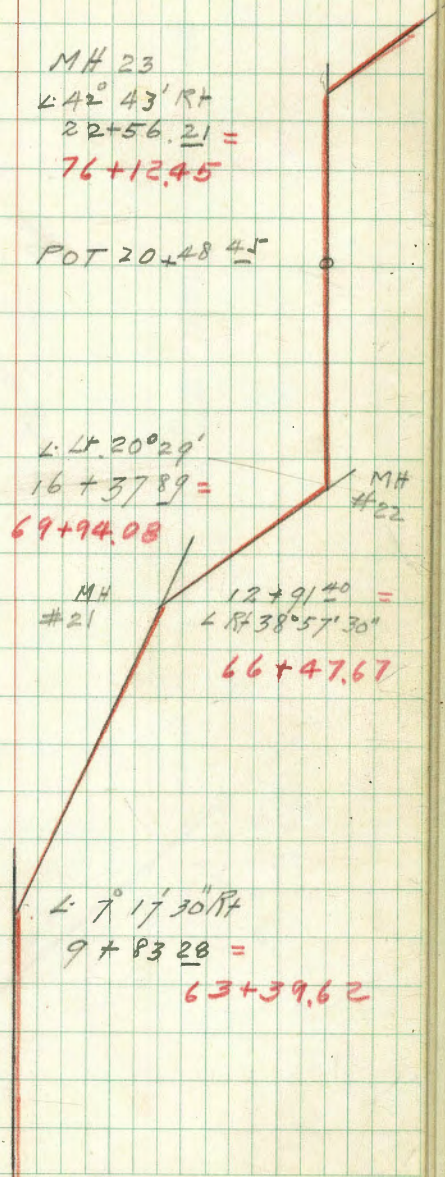 MH 23
∠ 42° 43' Rt
22+56.21 =
76+12.45
POT 20+48 45
∠ Lt. 20° 29'
16 + 37 89 =
69+94.08
MH
#22
MH
#21
12+91 40 =
∠ Rt 38° 57' 30"
66+47.67
∠ 7° 17' 30" Rt
9 + 83 28 =
63+39.62